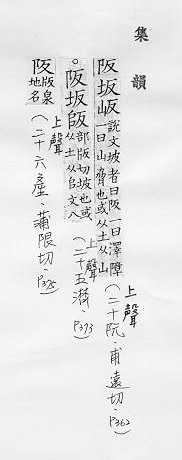 集韻
阪坂岅 說文坡者曰阪一曰澤障一曰山脅也或从土从山
上聲(二十阮‧甫遠切‧P362)
。阪坂𨸝 部版切坡也或从土从𠂤文八
上聲(二十五潸‧P373)
阪 版泉地名
上聲(二十六產‧蒲限切‧P375)